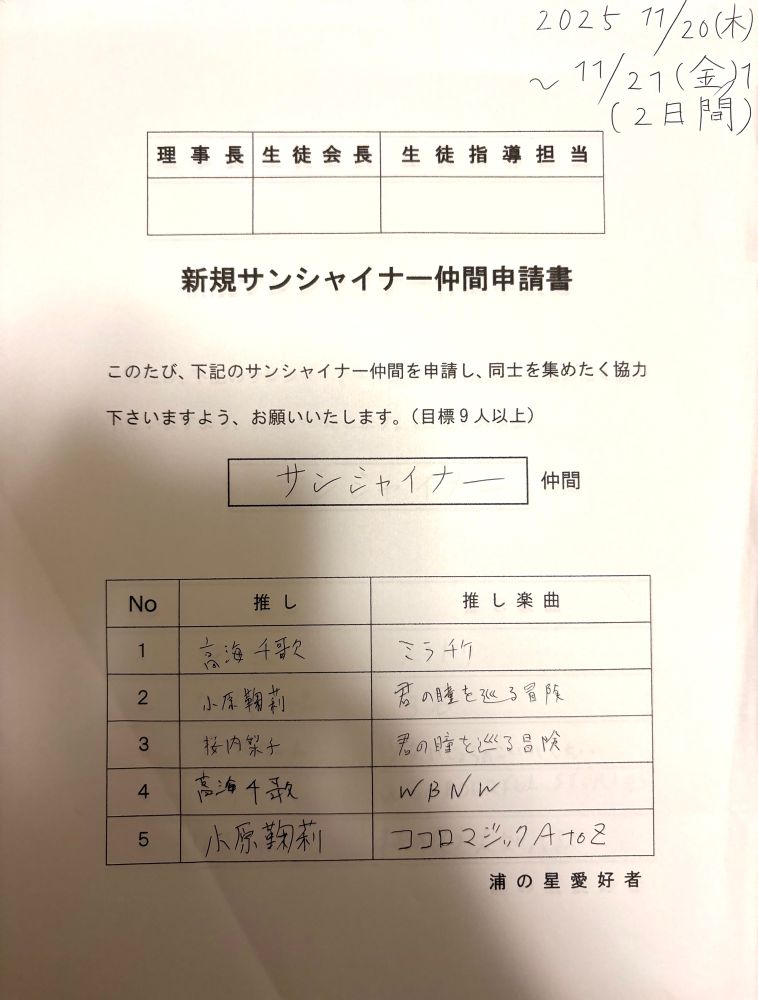 2025 11/20(木)
~ 11/21(金)
(2日間)
理事長 生徒会長 生徒指導担当
新規サンシャイナー仲間申請書
このたび、下記のサンシャイナー仲間を申請し、同士を集めたく協力
下さいますよう、お願いいたします。(目標9人以上)
サンシャイナー 仲間
No 推し 推し楽曲
1 高海千歌 ミラチケ
2 小原鞠莉 君の瞳を巡る冒険
3 桜内梨子 君の瞳を巡る冒険
4 高海千歌 WBNW
5 小原鞠莉 ココロマジックAtoZ
浦の星愛好者